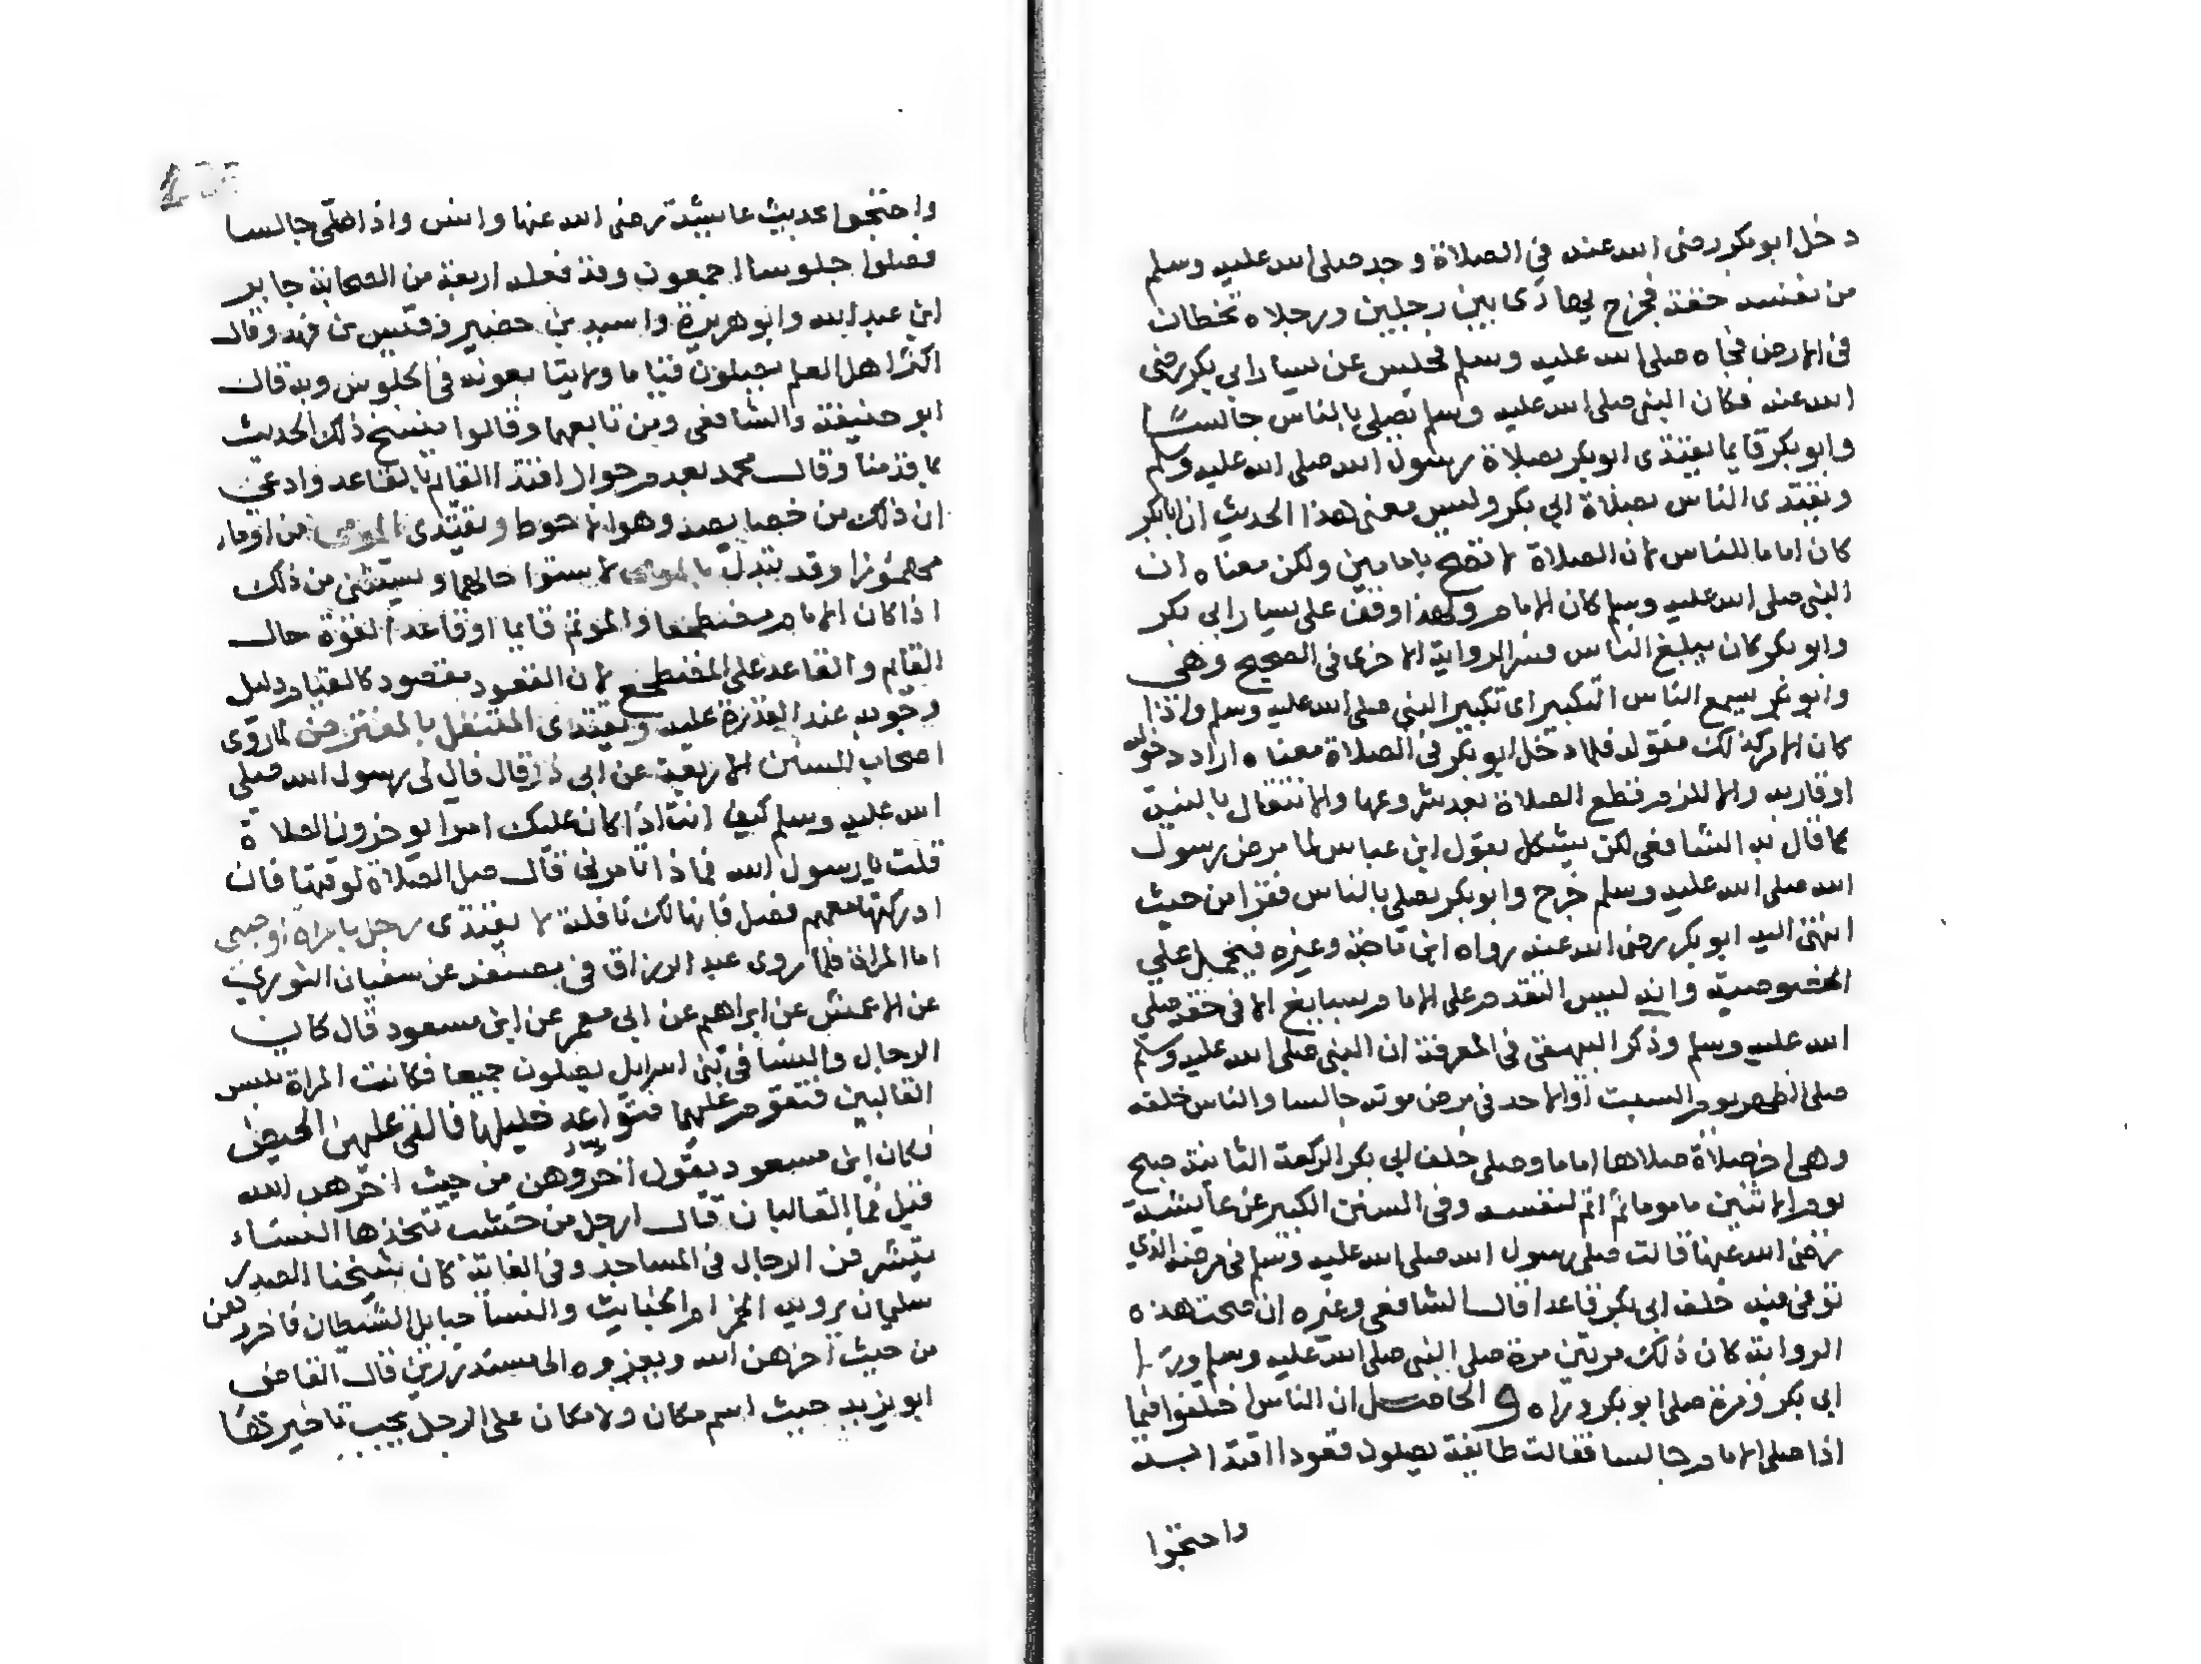 دخل ابو بكر رضى الله عنه في الصلاة وجد صلى الله عليه وسلم
من نفسه خفة فخرج يهادى بين رجلين ورجلاه تخطان
فى الارض فجاء صلى الله عليه وسلم فجلس عن يسار ابي بكر رضى
الله عنه فكان النبى صلى الله عليه وسلم يصلى بالناس جالسًا
وابو بكر قايما يقتدى ابو بكر بصلاة رسول الله صلى الله عليه وسلم
ويقتدى الناس بصلاة ابي بكر وليس معنى هذا الحديث ان ابا بكر
كان اماما للناس لان الصلاة لا تصح بامامين ولكن معناه ان
النبى صلى الله عليه وسلم كان الامام ولهذا وقف على يسار ابى بكر
وابو بكر كان يبلغ الناس فسر الرواية الاخرى فى الصحيح وهى
وابو بكر يسمع الناس التكبير اى تكبير النبى صلى الله عليه وسلم واذا
كان الامر كذلك فقوله فلما دخل ابو بكر فى الصلاة معناه اراد دخوله
او قاربه والا لزم قطع الصلاة بعد شروعها والانتقال بالنية
كما قال به الشافعى لكن يشكل بقول ابن عباس لما مرض رسول
الله صلى الله عليه وسلم خرج وابو بكر يصلى بالناس فقرا من حيث
انتهى اليه ابو بكر رضى الله عنه رواه ابن ماجة وغيره فيحمل على
الخصوصية وانه ليس التقدم على الامام بسابغ الا فى حقه صلى
الله عليه وسلم وذكر البيهقى فى المعرفة ان النبى صلى الله عليه وسلم
صلى الظهر يوم السبت او الاحد فى مرض موته جالسا والناس خلفه
وهى اخر صلاة صلاها اماما وصلى خلف ابى بكر الركعة الثانية صبح
يوم الاثنين ماموما ثم اتم لنفسه وفى السنن الكبير عن عايشة
رضى الله عنها قالت صلى رسول الله صلى الله عليه وسلم فى مرضه الذي
توفى فيه خلف ابى بكر قاعدا قال الشافعى وغيره ان صحت هذه
الرواية كان ذلك مرتين مرة صلى النبى صلى الله عليه وسلم ورا
ابى بكر ومرة صلى ابو بكر وراه والحاصل ان الناس اختلفوا فيما
اذا صلى الامام جالسا فقالت طايفة يصلون قعودا اقتدا به
واحتجوا
واحتجوا بحديث عايشة رضى الله عنها وانس واذا صلى جالسا
فصلوا جلوسا اجمعون وقد فعله اربعة من الصحابة جابر
ابن عبد الله وابو هريرة واسيد بن حضير وقيس بن فهد وقال
اكثر اهل العلم يصلون قياما ولا يتابعونه فى الجلوس وبه قال
ابو حنيفة والشافعى ومن تابعهما وقالوا بنسخ ذلك الحديث
بما قدمنا وقال محمد بعدم جواز اقتدا القايم بالقاعد وادعى
ان ذلك من خصايصه وهو الاحوط ويقتدى المومى من اوما
وقد بالمومى لاستوا حالهما ويستثنى من ذلك
اذا كان الامام مضطجعا والموتم قايما او قاعدا لقوة حال
القايم والقاعد على المضطجع لان القعود مقصود كالقيام دليل
وجوبه عند القدرة عليه ويقتدى المتنفل بالمفترض لما روى
اصحاب السنن الاربعة عن ابى ذر قال قال لى رسول الله صلى
الله عليه وسلم كيف انت اذا كان عليك امرا يوخرون الصلاة
قلت يا رسول الله فماذا تامرنى قال صل الصلاة لوقتها فان
ادركتها معهم فصل فانها لك نافلة لا يقتدى رجل بامراة او صبى
اما المراة فلما روى عبد الرزاق فى مصنفه عن سفيان الثوري
عن الاعمش عن ابراهيم عن ابى معمر عن ابن مسعود قال كان
الرجال والنسا فى بنى اسرايل يصلون جميعا فكانت المراة تلبس
القالبين فتقوم عليهما فتواعد خليلها فالقى عليهن الحيض
فكان ابن مسعود يقول اخروهن من حيث اخرهن الله
قيل فما القالبان قال ارجل من خشب تتخذها النساء
يتشرفن الرجال فى المساجد وفى الغاية كان شيخنا الصدر
سليمان يرويه الخمر ام الخبايث والنسا حبايل الشيطان فاخروهن
من حيث اخرهن الله ويعزوه الى مسند رزين قال القاضى
ابو يزيد حيث اسم مكان ولا مكان على الرجل يجب تاخيرها